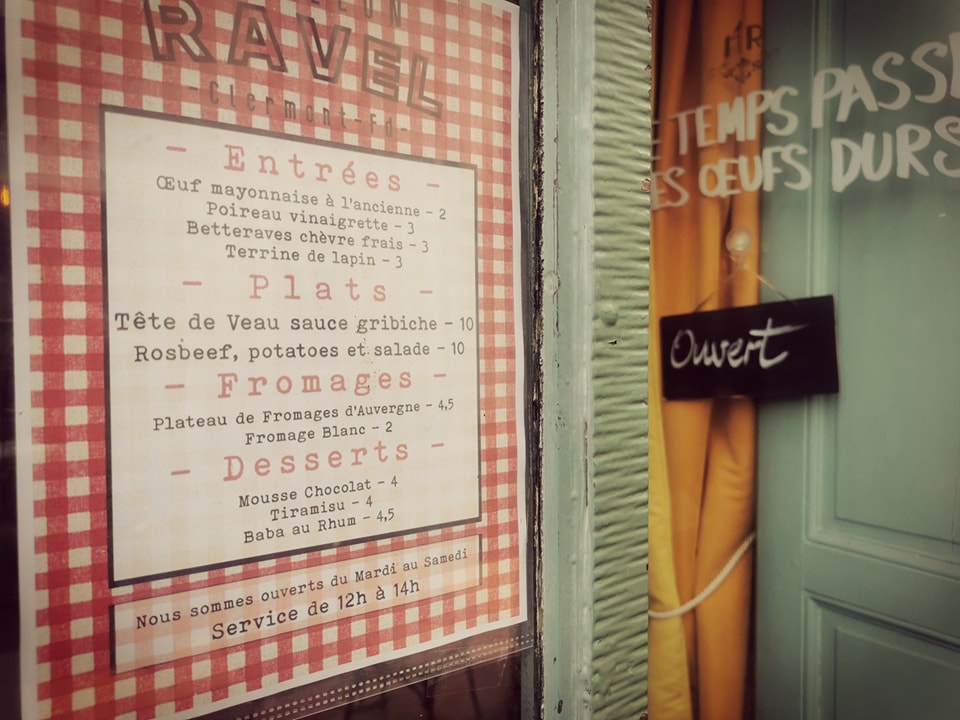 RAVEL
-Clermont-Fd-
- Entrées -
Œuf mayonnaise à l'ancienne - 2
Poireau vinaigrette - 3
Betteraves chèvre frais - 3
Terrine de lapin - 3
- Plats -
Tête de Veau sauce gribiche - 10
Rosbeef, potatoes et salade - 10
- Fromages -
Plateau de Fromages d'Auvergne - 4,5
Fromage Blanc - 2
- Desserts -
Mousse Chocolat - 4
Tiramisu - 4
Baba au Rhum - 4,5
Nous sommes ouverts du Mardi au Samedi
Service de 12h à 14h
HR
TEMPS PASSE
ES ŒUFS DURS
Ouvert